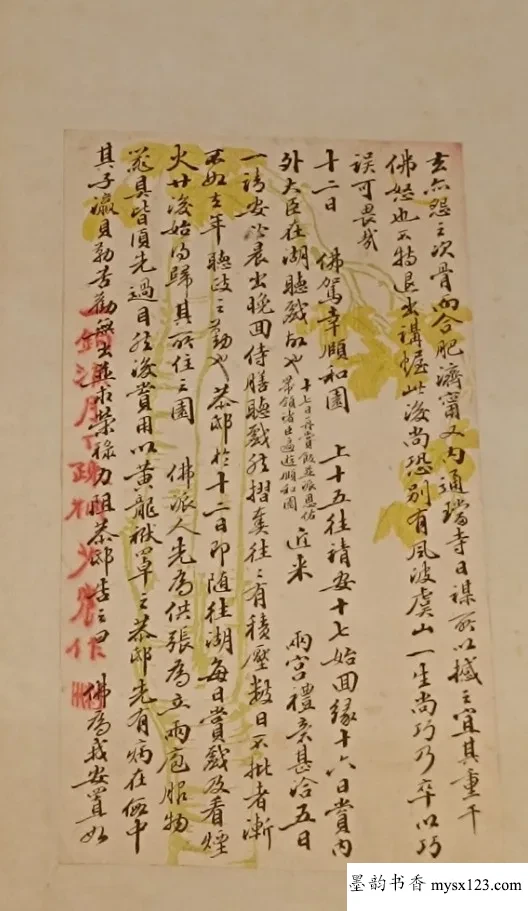 玄亦怨之次骨而合肥濟甯又內通璫寺日謀所以撼之宜其重干
佛怒也不特退出講幄此後尚恐別有風波虞山一生尚巧乃卒以巧
误可畏哉
十二日 佛駕幸頤和園 上十五往請安十七始回緣十六日賞內
外大臣在湖聽戲故也 十七日再賞飯並派恩佑帶領諸臣遍遊頤和園 近來 兩宮禮意甚洽五日
一請安必晨出晚回侍膳聽戲然摺奏往往有積壓數日不批者漸
不如去年聽政之勤也 恭邸於十二日即随往湖每日賞戲及看煙
火廿後始得歸其所住之園 佛派人先為供張為立兩庖服物
器具皆須先過目然後賞用以黃龍袱罩之恭邸先有病在假中
其子瀛貝勒苦勸無出並求榮祿力阻恭邸告之曰 佛為我安置如
墨韵书香 mysx123.com